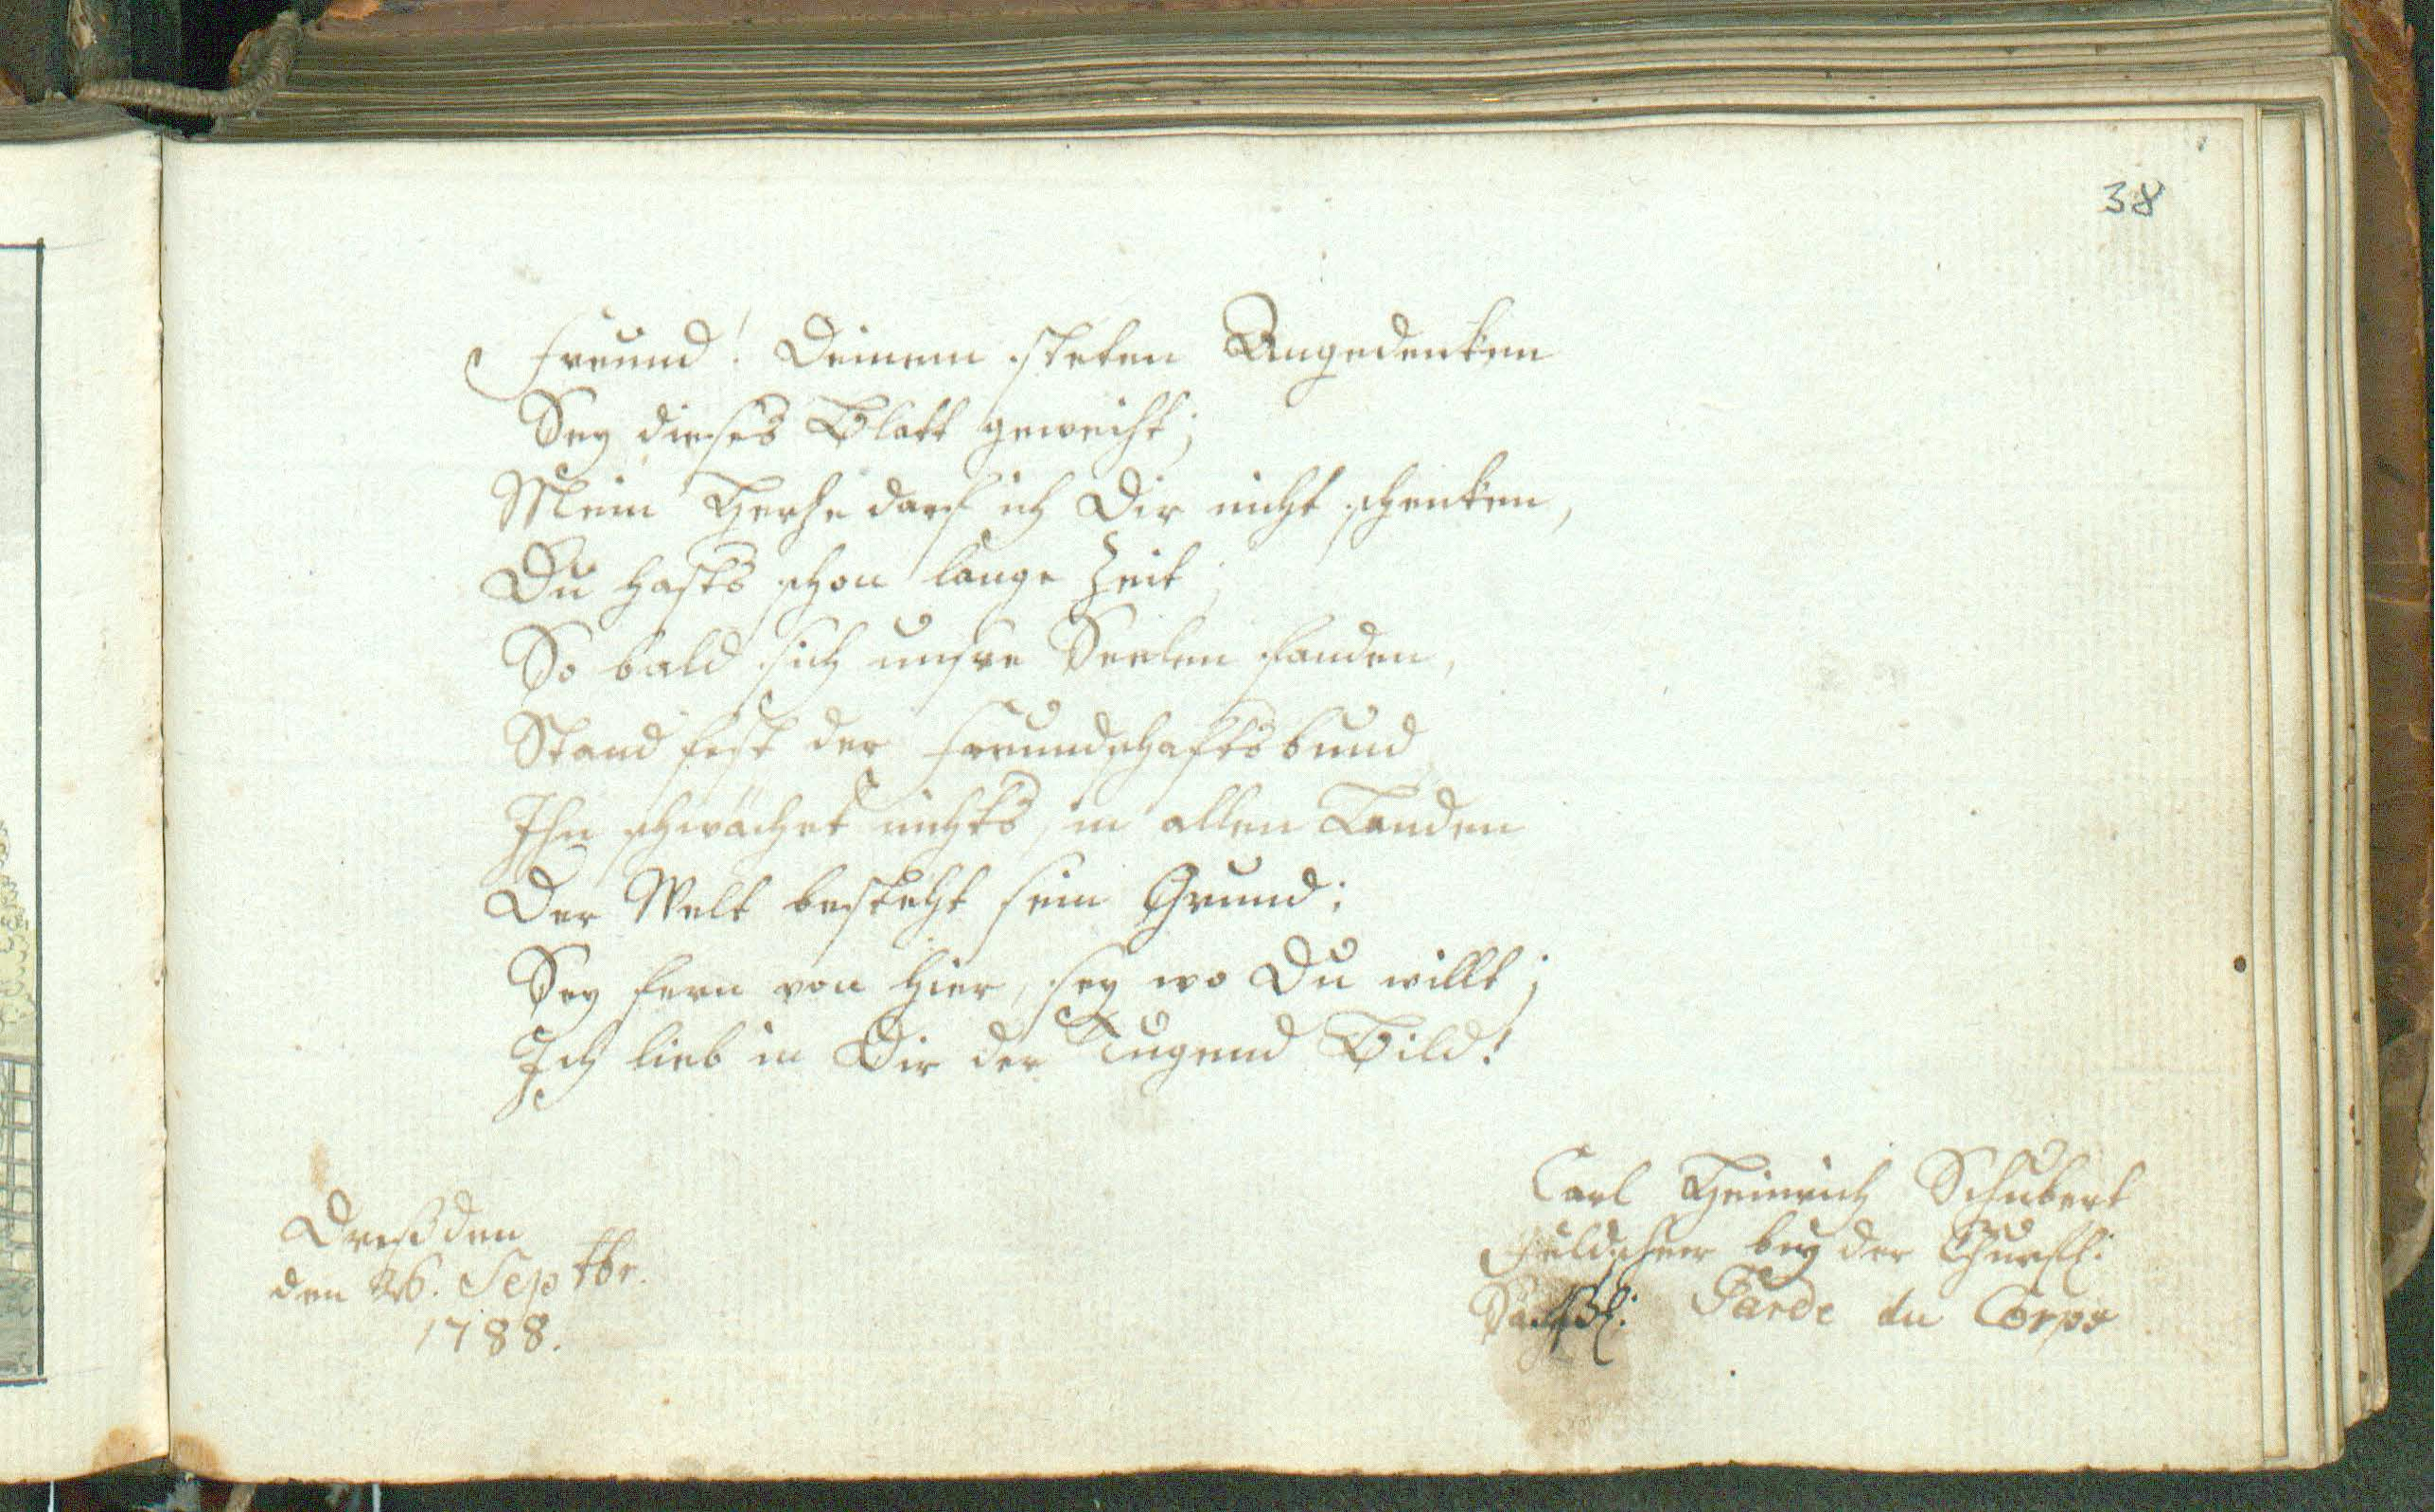 38
Freund! Deinem steten Angedenken
Sey dieses Blatt geweiht;
Mein Herze darf ich Dir nicht schenken,
Du hasts schon lange Zeit;
So bald sich unsre Seelen fanden,
Stand fest der Freundschaftsbund
Ihn schwächet nichts, in allen Landen
Der Welt besteht sein Grund;
Sey fern von hier, sey wo Du willt;
Ich lieb in Dir der Tugend Bild!
Carl Heinrich Schubert
Feldscheer bey der Churfl:
Garde du Corps
Dreßden
den 26. Septbr.
1788.